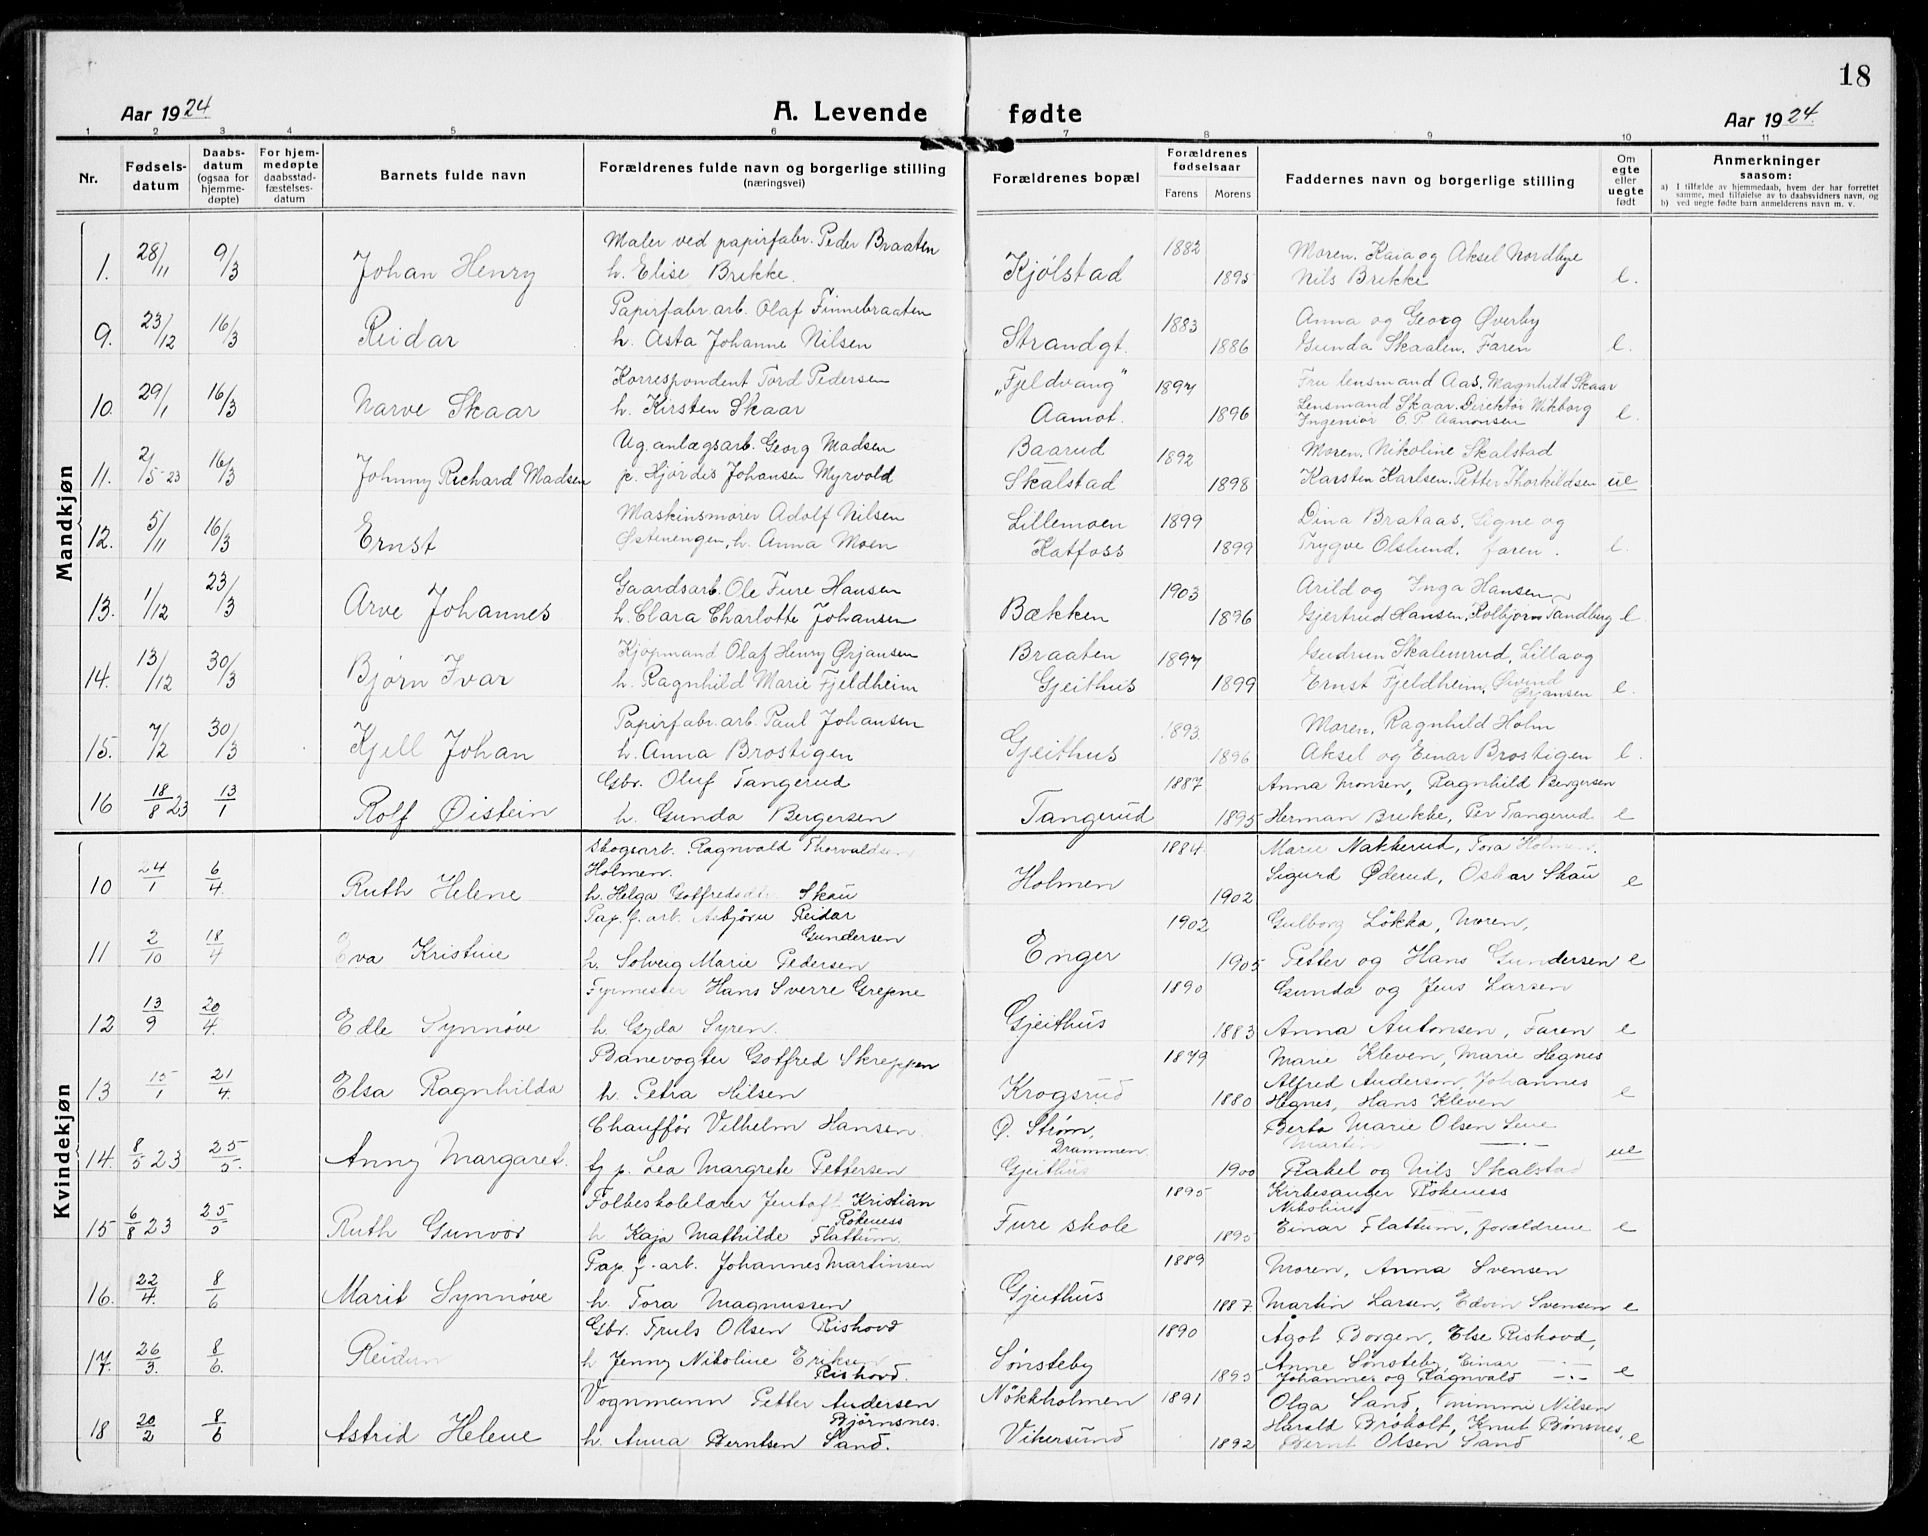 18
Aar 1924. A. Levende fødte Aar 1924.
1 2 3 4 5 6 7 8 9 10 11
Nr. Fødsels-datum Daabs-datum (ogsaa for hjemme-døpte) For hjem-medøpte daabsstad-fæstelses-datum Barnets fulde navn Forældrenes fulde navn og borgerlige stilling (næringsvei) Forældrenes bopæl Forældrenes fødselsaar Farens Morens Faddernes navn og borgerlige stilling Om egte eller uegte født Anmerkninger saasom:
a) I tilfælde av hjemmedaab, hvem der har forrettet samme, med tilføielse av to daabsvidners navn, og
b) ved uegte fødte barn anmelderens navn m. v.
Mandkjøn
Maler ved papirfabr. Peder Braaten 1882 Moren. Kaia og Aksel Nordbye
1. 28/11 9/3 Johan Henry h. Elise Brekke. Kjølstad 1895 Nils Brekke e.
Papirfabr. arb. Olaf Finnebraaten 1883 Anna og Georg Øverby
9. 23/12 16/3 Reidar h. Asta Johanne Nilsen Strandgt. 1886 Gunda Skaalen. Faren e.
Korrespondent Tord Pedersen "Fjeldvang" 1897 Fru lensmand Aas. Magnhild Skaar
10. 29/1 16/3 Narve Skaar h. Kirsten Skaar Aamot. 1896 Lensmand Skaar. Direktør Wikborg
Ingeniør C. P. Aanonsen e.
Ug. anlægsarb. Georg Madsen Baarud 1892 Moren. Nikoline Skalstad
11. 2/5-23 16/3 Johnny Richard Madsen p. Hjørdis Johansen Myrvold Skalstad 1898 Karsten Karlsen. Petter Thorkildsen ue
Maskinsmører Adolf Nilsen Lillemoen 1899 Dina Brataas. Signe og
12. 5/11 16/3 Ernst Østenengen, h. Anna Moen Katfoss 1899 Trygve Olslund. faren. e.
Gaardsarb. Ole Fure Hansen 1903 Arild og Inga Hansen
13. 1/12 23/3 Arve Johannes h. Clara Charlotte Johansen Bækken 1896 Gjertrud Hansen, Kolbjørn Sandberg e
Kjøpmand Olaf Henry Ørjansen Braaten 1897 Gudrun Skalenrud, Lilla og
14. 13/12 30/3 Bjørn Ivar h. Ragnhild Marie Fjeldheim Gjeithus 1899 Ernst Fjeldheim, Øivind Ørjansen e.
Papirfabr. arb. Paul Johansen 1893. Moren, Ragnhild Holm
15. 7/2 30/3 Kjell Johan h. Anna Brostigen Gjeithus 1896 Aksel og Einar Brostigen e.
Gbr. Oluf Tangerud 1887 Anna Monsen, Ragnhild Bergersen
16 18/8 23 13/1 Rolf Øistein h. Gunda Bergersen Tangerud 1895 Herman Brekke, Per Tangerud e
Kvindekjøn
Skogsarb. Ragnvald Thorvaldsen 1884 Marie Nakkerud, Tora Holmen.
Holmen. Sigurd Øderud, Oskar Skau
10 24/1 6/4. Ruth Helene h. Helga Gotfredsdtr Skau Holmen 1902 e
Pap. f. arb. Asbjørn Reidar Gundersen 1902 Gulborg Løkka, Moren,
11 2/10 18/4 Eva Kristine h. Solveig Marie Pedersen Enger 1905 Petter og Hans Gundersen e
Fyrmester Hans Sverre Grejne 1890 Gunda og Jens Larsen
12 13/9 20/4. Edle Synnøve h. Gyda Syren. Gjeithus 1883 Anna Antonsen, Faren e
Banevogter Gotfred Skreppen 1879 Marie Kleven, Marie Hegnes
13 15/1 21/4. Elsa Ragnhilda h. Petra Hilsen Krogsrud 1880 Alfred Anderson, Johannes
Hegnes, Hans Kleven e
Chauffør Vilhelm Hansen. Ø. Strøm, Drammen. Berta Marie Olsen Lene
Martin —.—
14. 8/5 23 25/5. Anny Margaret. fg p. Lea Margrete Pettersen Gjeithus 1900 Rakel og Nils Skalstad ue
Folkeskolelærer Jentoft Kristian Røkeness 1895 Kirkesanger Røkeness
Nikoline
15 6/8 23 25/5 Ruth Gunvor h Kaja Mathilde Flattum. Fure skole 1895 Einar Flattum, forældrene e
Pap. f. arb. Johannes Martinsen 1889 Moren, Anna Svensen
16. 22/4. 8/6 Marit Synnøve h. Tora Magnussen Gjeithus 1887 Martin Larsen, Edvin Svensen e
Gbr. Truls Olsen Rishovd 1890 Agot Borgen, Else Rishovd,
17. 26/3. 8/6. Reidun h Jenny Nikoline Eriksen Rishovd. Sønsteby 1895 Anne Sønsteby, Einar —.—
Johannes og Ragnvald —.— e
Vognmann Petter Andersen Bjørnsnes. Nökkholmen 1891 Olga Sand, Mimmi Nilsen
18 20/2 8/6 Astrid Helene h. Anna Berntsen Sand. Vikersund 1892 Harald Brøholt, Knut Bønsnes,
Bernt Olsen Sand e